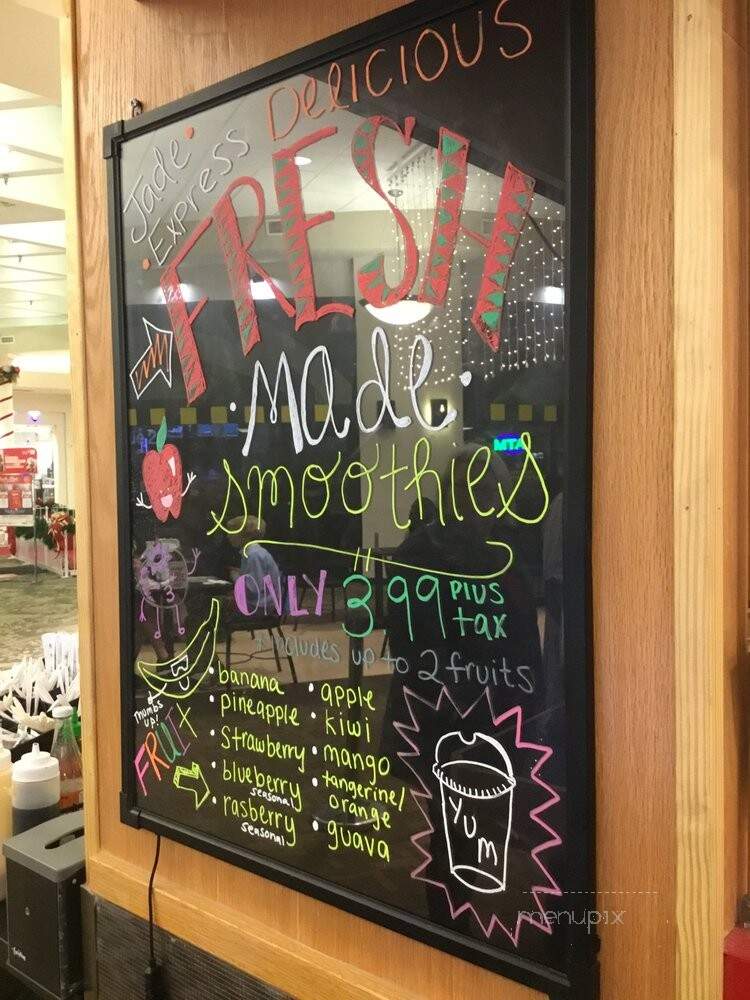 Jade
Express
Delicious
FRESH
Made
Smoothies
ONLY 3.99 plus tax
+ includes up to 2 fruits
Thumbs up!
FRUIT
• banana
• pineapple
• Strawberry
• blueberry
seasonal
• rasberry
seasonal
• apple
• kiwi
• mango
• tangerine/
orange
• guava
YUM
MTA
menupix